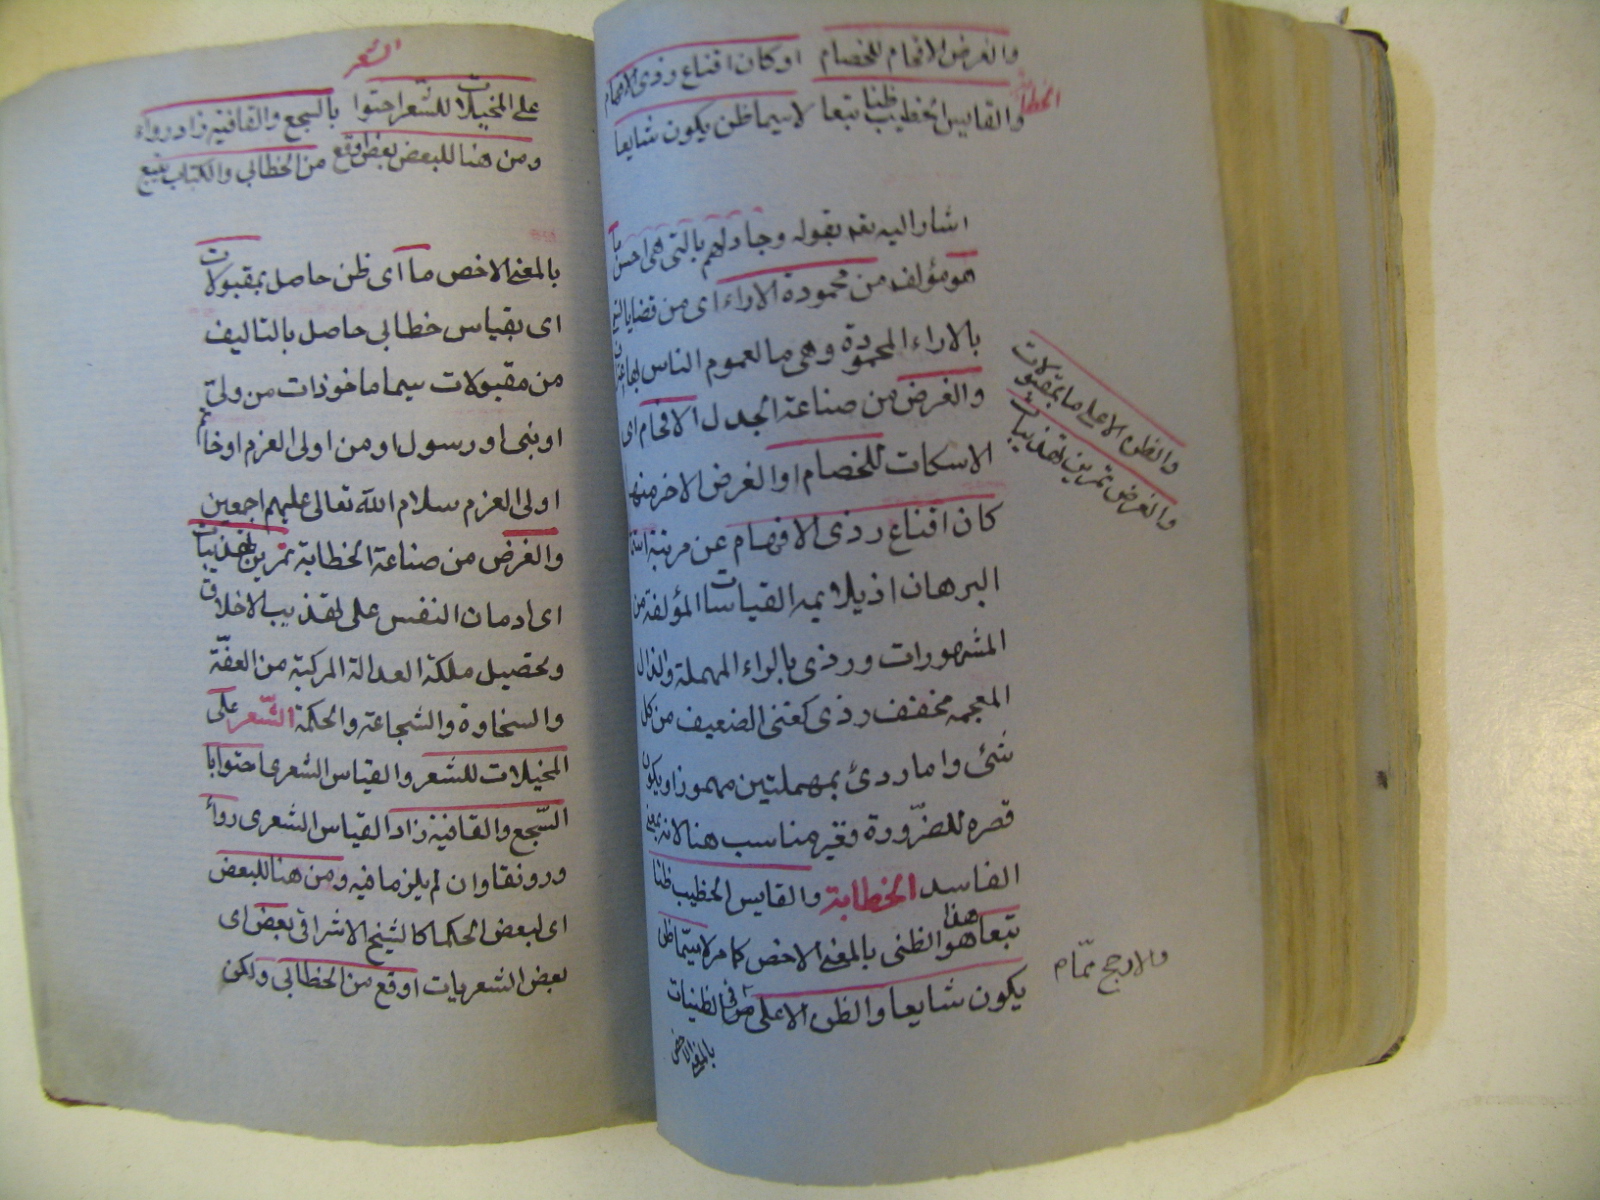 والغرض الافحام للخصام او كان اقناع رذى الافهام
الخطابة
والقايس الخطيب ظنا تبعا لاسيما ظن يكون شايعا
اشار اليه بقوله وجادلهم بالتى هى احسن
هو مؤلف من محمودة الاراء اى من قضايا
بالاراء المحمودة وهى ما لعموم الناس بها
والغرض من صناعة الجدل الافحام اى
الاسكات للخصام او الغرض الاخر منها
كان اقناع رذى الافهام عن مرتبة
البرهان اذ يلايمه القياسات المؤلفة من
المشهورات ورذى بالراء المهملة والذال
المعجمة مخفف رذى كغنى الضعيف من كل
شئ واما ردئ بمهملتين مهموزا ويكون
قصره للضرورة فغير مناسب هنا لانه بمعنى
الفاسد الخطابة والقايس الخطيب ظنا
تبعا هذا هو الظنى بالمعنى الاخص كما مر لاسيما ظن
يكون شايعا والظن الاعلى من فى الظنيات
بالمعنى الاخص
والظن الاعلى ما بمقبولات
والغرض تمرين تهذيبات
والارجح تمام
الشعر
على المخيلات للشعر احتوا بالسجع والقافية زاد رواء
ومن هنا للبعض بعض اوقع من الخطابى والكتاب يتبع
بالمعنى الاخص ما اى ظن حاصل بمقبولات
اى بقياس خطابى حاصل بالتاليف
من مقبولات سيما ماخوذات من ولى
او نبى او رسول او من اولى العزم او خاتم
اولى العزم سلام الله تعالى عليهم اجمعين
والغرض من صناعة الخطابة تمرين تهذيبات
اى ادمان النفس على تهذيب الاخلاق
وتحصيل ملكة العدالة المركبة من العفة
والسخاوة والشجاعة والحكمة الشعر على
المخيلات للشعر والقياس الشعرى احتوا با
السجع والقافية زاد القياس الشعرى رواء
ورونقا وان لم يلزما فيه ومن هنا للبعض
اى لبعض الحكما كالشيخ الاشراقى بعض اى
بعض الشعريات اوقع من الخطابى ولكن